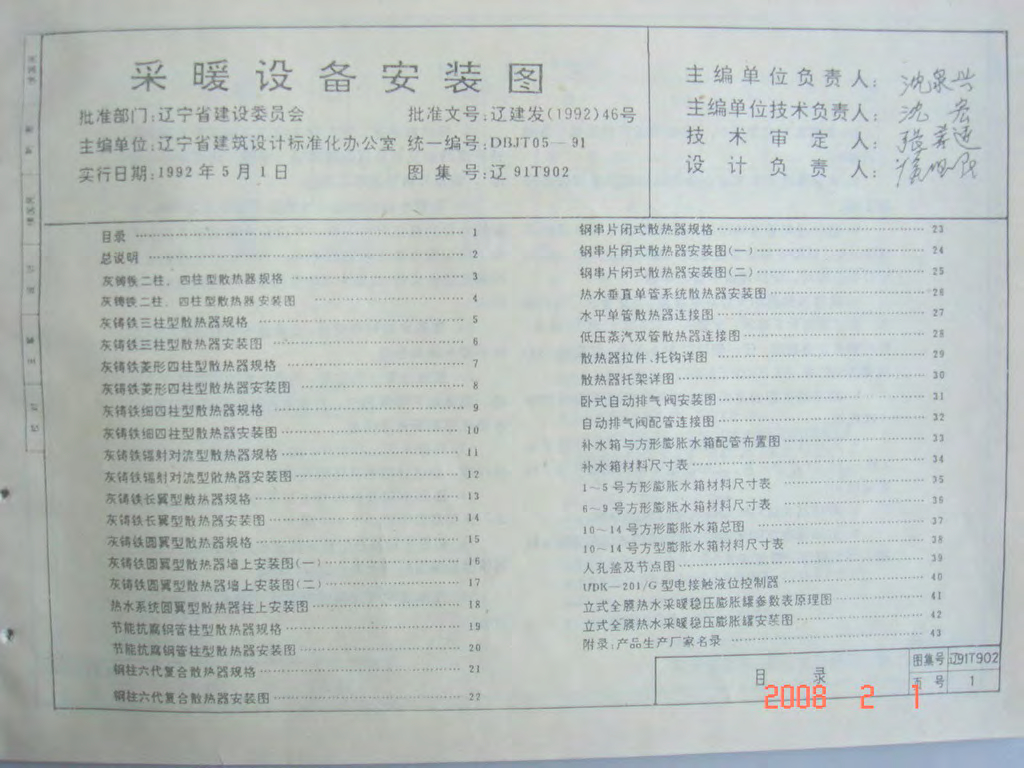 采暖设备安装图
批准部门:辽宁省建设委员会 批准文号:辽建发(1992)46号
主编单位:辽宁省建筑设计标准化办公室 统一编号:DBJT05-91
实行日期:1992年5月1日 图集号:辽91T902
主编单位负责人: 沈泉兴
主编单位技术负责人: 沈宏
技术审定人:
设计负责人:
目录 1
总说明 2
灰铸铁二柱、四柱型散热器规格 3
灰铸铁二柱、四柱型散热器安装图 4
灰铸铁三柱型散热器规格 5
灰铸铁三柱型散热器安装图 6
灰铸铁菱形四柱型散热器规格 7
灰铸铁菱形四柱型散热器安装图 8
灰铸铁细四柱型散热器规格 9
灰铸铁细四柱型散热器安装图 10
灰铸铁辐射对流型散热器规格 11
灰铸铁辐射对流型散热器安装图 12
灰铸铁长翼型散热器规格 13
灰铸铁长翼型散热器安装图 14
灰铸铁圆翼型散热器规格 15
灰铸铁圆翼型散热器墙上安装图(一) 16
灰铸铁圆翼型散热器墙上安装图(二) 17
热水系统圆翼型散热器柱上安装图 18
节能抗腐钢管柱型散热器规格 19
节能抗腐钢管柱型散热器安装图 20
钢柱六代复合散热器规格 21
钢柱六代复合散热器安装图 22
钢串片闭式散热器规格 23
钢串片闭式散热器安装图(一) 24
钢串片闭式散热器安装图(二) 25
热水垂直单管系统散热器安装图 26
水平单管散热器连接图 27
低压蒸汽双管散热器连接图 28
散热器拉件、托钩详图 29
散热器托架详图 30
卧式自动排气阀安装图 31
自动排气阀配管连接图 32
补水箱与方形膨胀水箱配管布置图 33
补水箱材料尺寸表 34
1～5号方形膨胀水箱材料尺寸表 35
6～9号方形膨胀水箱材料尺寸表 36
10～14号方形膨胀水箱总图 37
10～14号方型膨胀水箱材料尺寸表 38
人孔盖及节点图 39
UDK-201/G型电接触液位控制器 40
立式全膜热水采暖稳压膨胀罐参数表原理图 41
立式全膜热水采暖稳压膨胀罐安装图 42
附录:产品生产厂家名录 43
目录 图集号 辽91T902
页号 1
2008 2 1